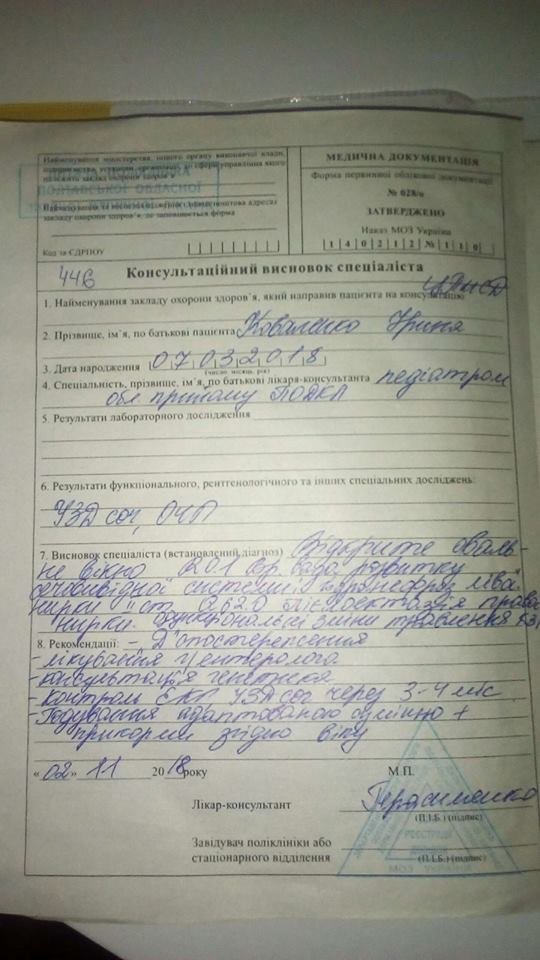 Найменування міністерства, іншого органу виконавчої влади,
підприємства, установи, організації, до сфери управління якого
належить заклад охорони здоров'я
ПОЛТАВСЬКОЇ ОБЛАСНОЇ
Найменування та місцезнаходження (повна поштова адреса)
закладу охорони здоров'я, де заповнюється форма
Код за ЄДРПОУ
МЕДИЧНА ДОКУМЕНТАЦІЯ
Форма первинної облікової документації
№ 028/о
ЗАТВЕРДЖЕНО
Наказ МОЗ України
1 4 0 2 1 2 № 1 1 0
446
Консультаційний висновок спеціаліста
1. Найменування закладу охорони здоров'я, який направив пацієнта на консультацію
2. Прізвище, ім'я, по батькові пацієнта Коваленко
3. Дата народження 0 7 0 3 2 0 1 8
(число, місяць, рік)
4. Спеціальність, прізвище, ім'я, по батькові лікаря-консультанта педіатром
прийому ПОДКЛ
5. Результати лабораторного дослідження
6. Результати функціонального, рентгенологічного та інших спеціальних досліджень:
УЗД соч, ОЧП
7. Висновок спеціаліста (встановлений діагноз) Відкрите оваль-
не вікно вада розвитку
сечовидної системи: лівої
нирки II ст Q 62.0 права
нирки. функціональні зміни травлення
8. Рекомендації: - Д спостереження
- лікування
- консультація генетика
- контроль ЕКГ УЗД соч через 3-4 міс
- Годування адаптованою сумішшю +
прикорми згідно віку
« 02 » 11 20 18 року
М.П.
Лікар-консультант Герасименко
(П.І.Б.) (підпис)
Завідувач поліклініки або
стаціонарного відділення
(П.І.Б.) (підпис)
МОЗ УКРАЇНИ